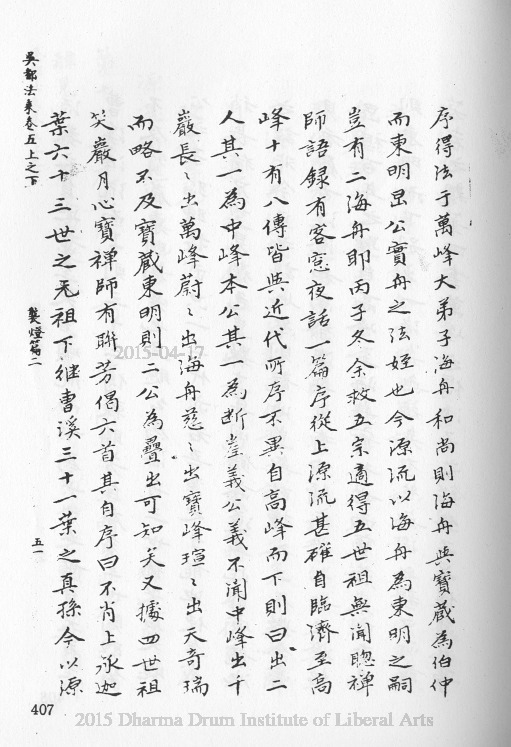 序得法于萬峰大弟子海舟和尚則海舟與寶蔵為伯仲
而東明旵公實舟之法姪也今源流以海舟為東明之嗣
豈有二海舟耶丙子冬余救五宗適得五世祖無聞聰禅
師語録有客窓夜話一篇序從上源流甚確自臨濟至高
峰十有八傳皆與近代所序不異自高峰而下則曰出二
人其一為中峰本公其一為断崖義公義不聞中峰出千
巖長〻出萬峰蔚〻出海舟慈〻出寶峰瑄〻出天奇瑞
而略不及寶蔵東明則二公為疊出可知矣又據四世祖
笑巖月心寶禅師有聨芳偈六首其自序曰不肖上承迦
葉六十三世之元祖下継曹溪三十一葉之真孫今以源
吳都法乘卷五上之下
奘燈篇二
五一
407
2015-04-17
2015 Dharma Drum Institute of Liberal Arts